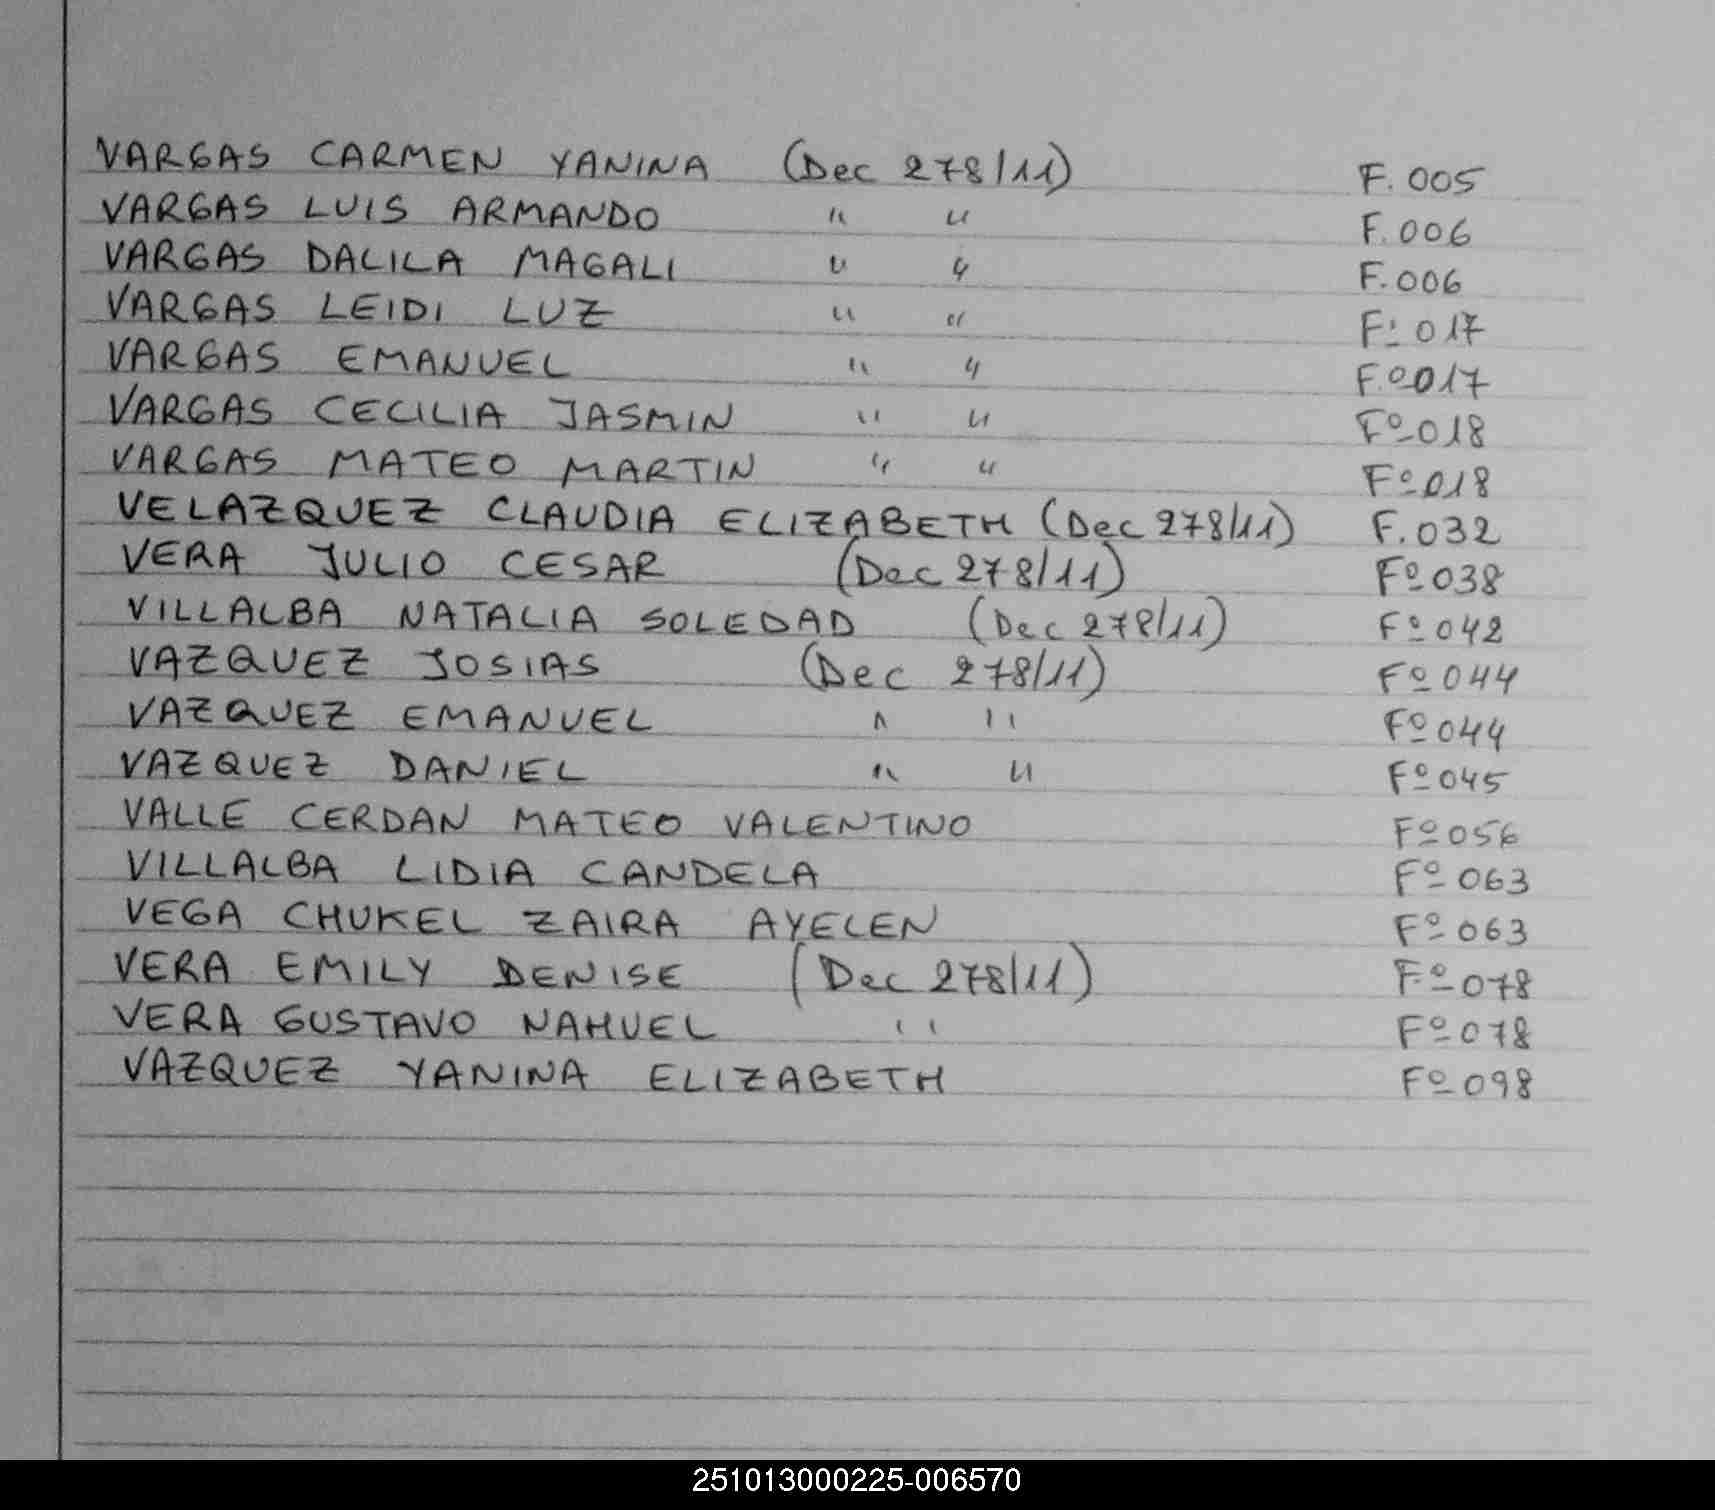 VARGAS CARMEN YANINA (Dec 278/11) F. 005
VARGAS LUIS ARMANDO " " F. 006
VARGAS DALILA MAGALI " " F. 006
VARGAS LEIDI LUZ " " Fº 017
VARGAS EMANUEL " " F.º 017
VARGAS CECILIA JASMIN " " Fº 018
VARGAS MATEO MARTIN " " Fº 018
VELAZQUEZ CLAUDIA ELIZABETH (Dec 278/11) F. 032
VERA JULIO CESAR (Dec 278/11) Fº 038
VILLALBA NATALIA SOLEDAD (Dec 278/11) Fº 042
VAZQUEZ JOSIAS (Dec 278/11) Fº 044
VAZQUEZ EMANUEL " " Fº 044
VAZQUEZ DANIEL " " Fº 045
VALLE CERDAN MATEO VALENTINO Fº 056
VILLALBA LIDIA CANDELA Fº 063
VEGA CHUKEL ZAIRA AYELEN Fº 063
VERA EMILY DENISE (Dec 278/11) F.º 078
VERA GUSTAVO NAHUEL " Fº 078
VAZQUEZ YANINA ELIZABETH Fº 098
251013000225-006570